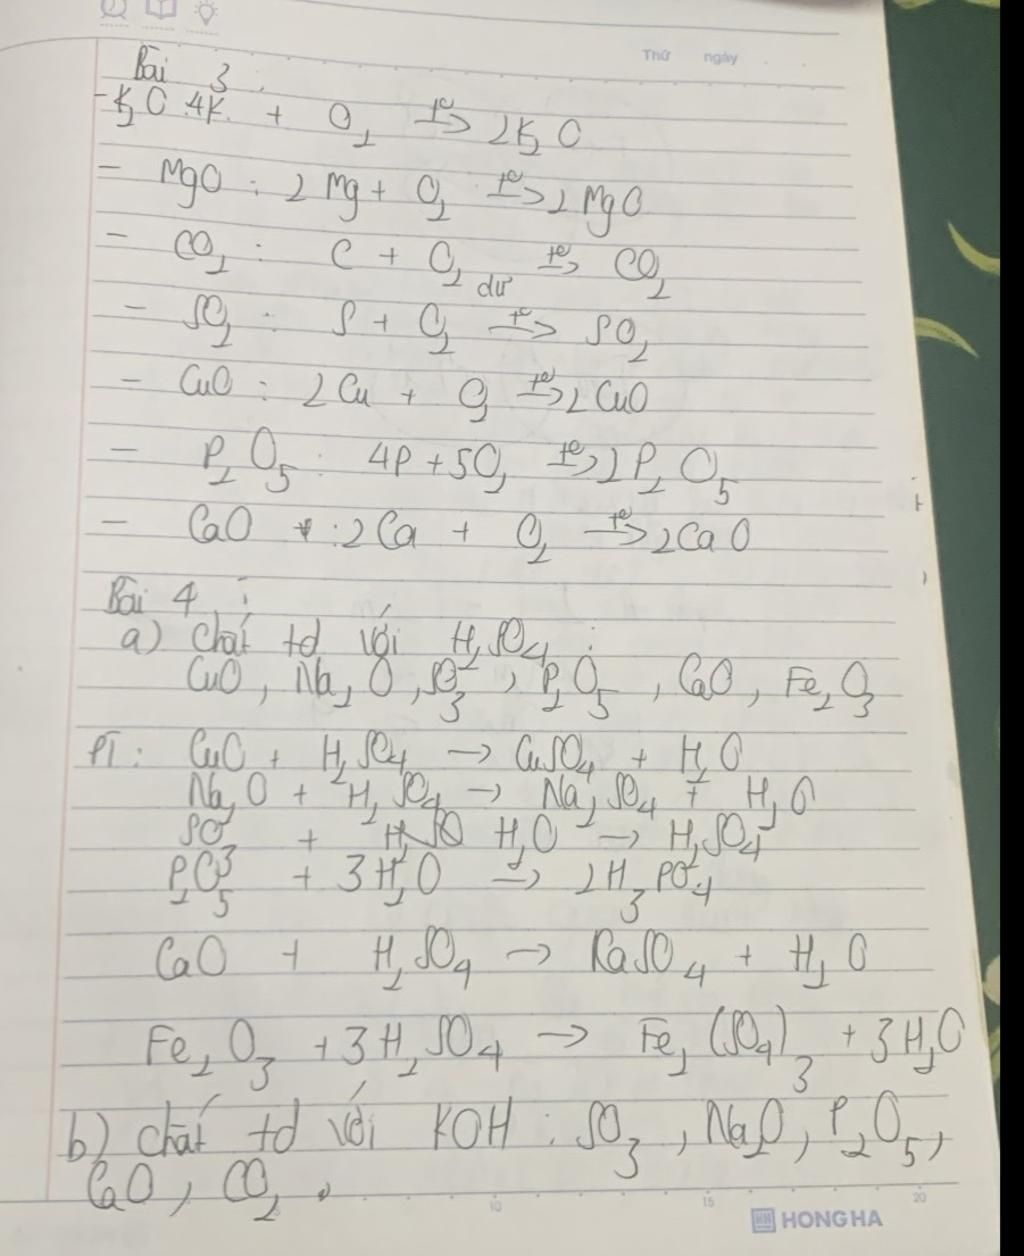 Thứ ngày
Bài 3:
- K₂O 4K + O₂ t°→ 2K₂O
- MgO : 2Mg + O₂ t°→ 2MgO
- CO₂ : C + O₂ dư t°→ CO₂
- SO₂ : S + O₂ t°→ SO₂
- CuO : 2Cu + O₂ t°→ 2CuO
- P₂O₅ : 4P + 5O₂ t°→ 2P₂O₅
- CaO : 2Ca + O₂ t°→ 2CaO
Bài 4 :
a) Chất td với H₂SO₄ :
CuO, Na₂O, SO₃, P₂O₅, CaO, Fe₂O₃
PT: CuO + H₂SO₄ → CuSO₄ + H₂O
Na₂O + H₂SO₄ → Na₂SO₄ + H₂O
SO₃ + H₂O → H₂SO₄
P₂O₅ + 3H₂O → 2H₃PO₄
CaO + H₂SO₄ → CaSO₄ + H₂O
Fe₂O₃ + 3H₂SO₄ → Fe₂(SO₄)₃ + 3H₂O
b) Chất td với KOH : SO₃, Na₂O, P₂O₅,
CaO, CO₂.
10 15 20
HONG HA